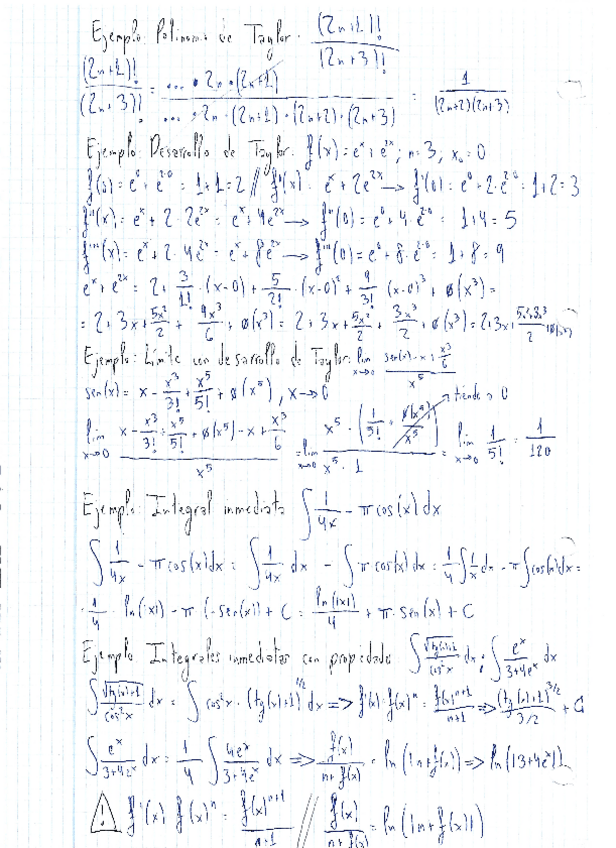 Ejemplo: Polinomio de Taylor. (2n+1)! / (2n+3)!
(2n+1)! / (2n+3)! = ... · 2n · (2n+1) / ... · 2n · (2n+1) · (2n+2) · (2n+3) = 1 / (2n+2)(2n+3)
Ejemplo: Desarrollo de Taylor. f(x) = e^x + e^2x; n=3, x₀=0
f(0) = e^0 + e^2·0 = 1+1=2 // f'(x) = e^x + 2e^2x → f'(0) = e^0 + 2·e^2·0 = 1+2=3
f''(x) = e^x + 2·2e^2x = e^x + 4e^2x → f''(0) = e^0 + 4·e^2·0 = 1+4=5
f'''(x) = e^x + 2·4e^2x = e^x + 8e^2x → f'''(0) = e^0 + 8·e^2·0 = 1+8=9
e^x + e^2x = 2 + 3/1! · (x-0) + 5/2! · (x-0)² + 9/3! (x-0)³ + o(x³) =
= 2 + 3x + 5x²/2 + 9x³/6 + o(x³) = 2 + 3x + 5x²/2 + 3x³/2 + o(x³) = 2+3x+
Ejemplo: Límite con desarrollo de Taylor: lim x→0 sen(x) - x + x³/6 / x⁵
sen(x) = x - x³/3! + x⁵/5! + o(x⁵), x→0
lim x→0 x - x³/3! + x⁵/5! + o(x⁵) - x + x³/6 / x⁵ = lim x→0 x⁵ · (1/5! + o(x⁵)/x⁵) / x⁵ · 1 → tiende a 0 = lim x→0 1/5! = 1/120
Ejemplo: Integral inmediata ∫ 1/4x - π cos(x) dx
∫ 1/4x - π cos(x) dx = ∫ 1/4x dx - ∫ π cos(x) dx = 1/4 ∫ 1/x dx - π ∫ cos(x) dx =
= 1/4 · ln(|x|) - π (-sen(x)) + C = ln(|x|)/4 + π · sen(x) + C
Ejemplo: Integrales inmediatas con propiedades ∫ √tg(x)+1 / cos²x dx ; ∫ e^x / 3+4e^x dx
∫ √tg(x)+1 / cos²x dx = ∫ cos²x · (tg(x)+1)^1/2 dx => f'(x) · f(x)^n = f(x)^n+1 / n+1 => (tg(x)+1)^3/2 / 3/2 + C
∫ e^x / 3+4e^x dx = 1/4 ∫ 4e^x / 3+4e^x dx => f(x) / n+f(x) = ln(|n+f(x)|) => ln(|3+4e^x|)
! f'(x) · f(x)^n = f(x)^n+1 / n+1 // f(x) / n+f(x) = ln(|n+f(x)|)